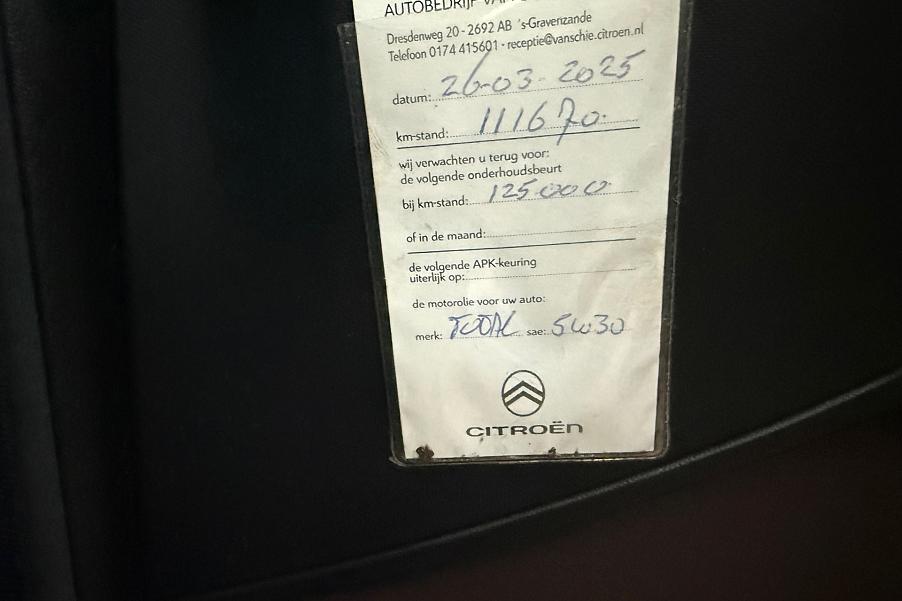 AUTOBEDRIJF
Dresdenweg 20 - 2692 AB 's-Gravenzande
Telefoon 0174 415601 - receptie@vanschie.citroen.nl
datum: 26-03-2025
km-stand: 111670.
wij verwachten u terug voor:
de volgende onderhoudsbeurt
bij km-stand: 125000
of in de maand:
de volgende APK-keuring
uiterlijk op:
de motorolie voor uw auto:
merk: TOTAL sae: 5W30
CITROËN